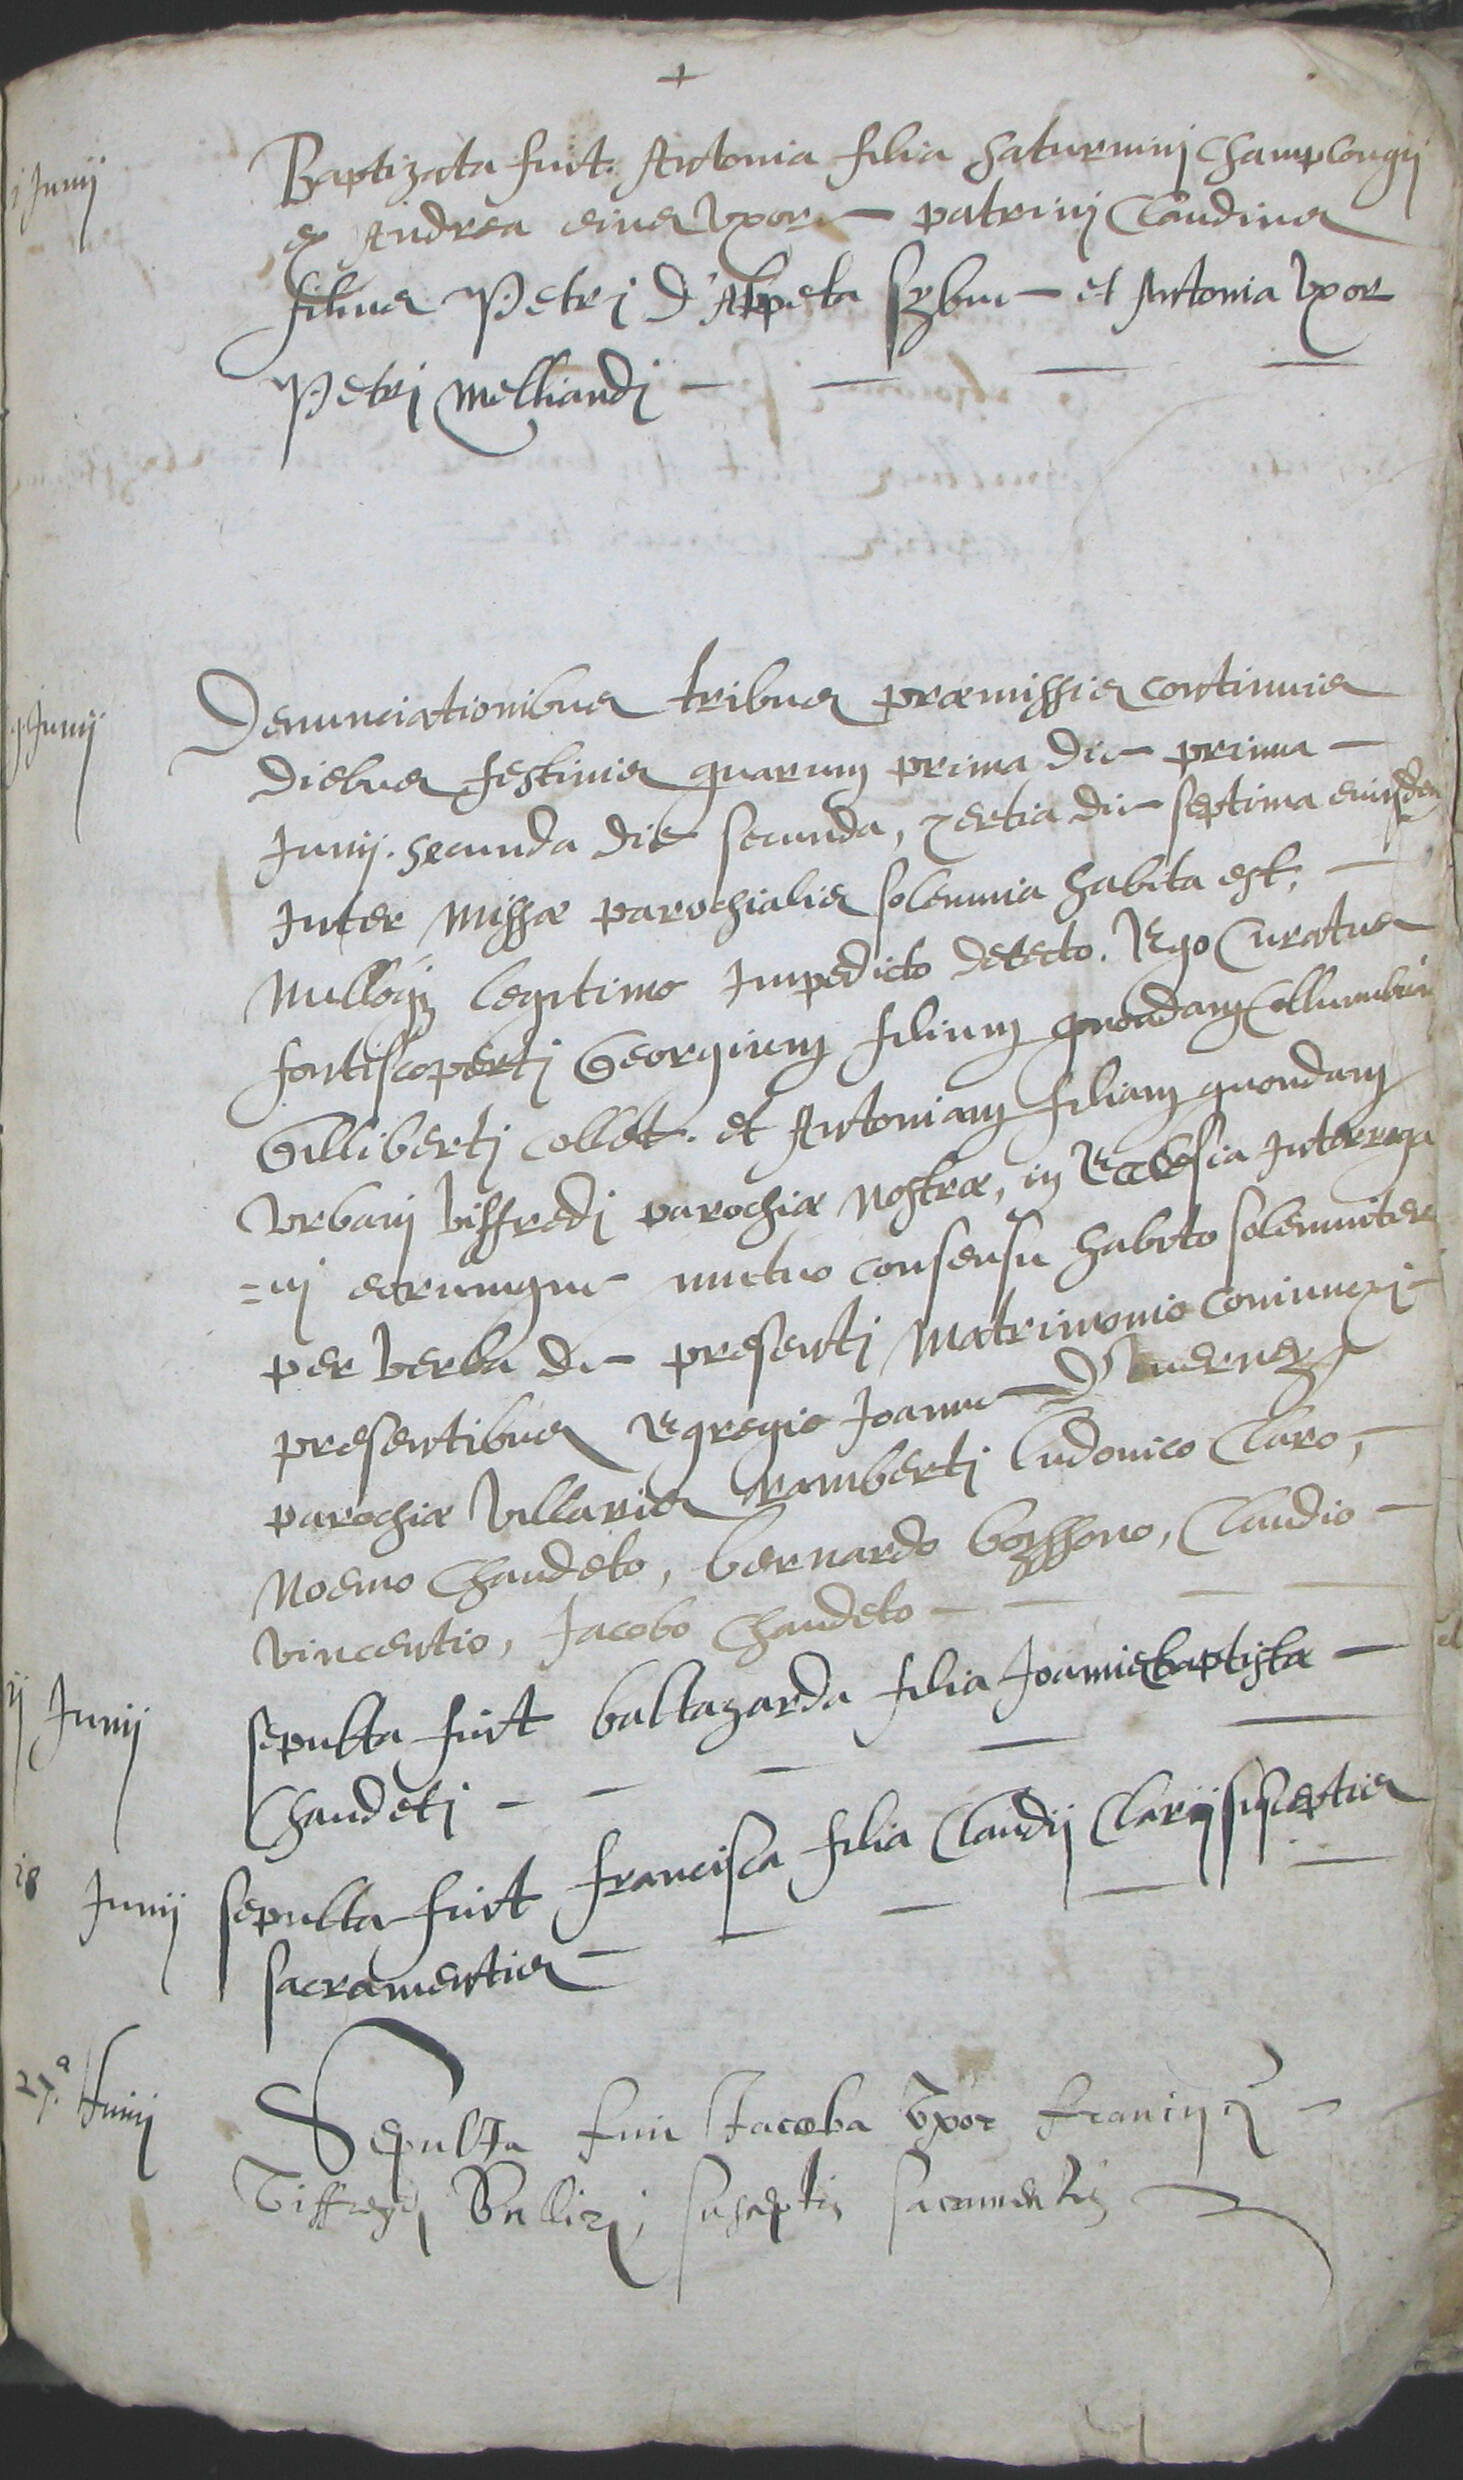 +
Junij
Baptizata fuit Antonia filia Saturninj Champlongij
ex Andrea eius Uxore patrinj Claudius
filius Petrj D'Alpeta et Antonia Uxor
Petrj Melliandj
9 Junij
Denunciationibus tribus præmissis continuis
diebus festiuis quarum prima die prima
Junij. secunda die secunda, tertia die septima eiusdem
Inter Missæ parochialis solemnia habita est,
Nulloq; legitimo Impedicto detecto. Ego Curatus
fontiscopertj Georgium filium quondam Collumbani
Gillibertj Collet. et Antoniam filiam quondam
Urbanj Viffredj parochiæ Nostræ, in Ecclesia Interroga
=uj eorumque mutuo consensu habito solemniter
per Verba de presentj Matrimonio coniunxi
presentibus Egregio Joanne D'
parochiæ Villaris Ramberti Ludouico Claro,
Noemo Chaudeto, bernardo bossono, Claudio
Vincentio, Jacobo Chaudeto
ij Junij
sepulta fuit baltazarda filia Joannisbaptistæ
Chaudetj
18 Junij
sepulta fuit francisca filia Claudij Clarij susceptis
sacramentis
27.a Junij
Sepulta fuit Jacoba Uxor francisci
Viffredj susceptis sacramentis